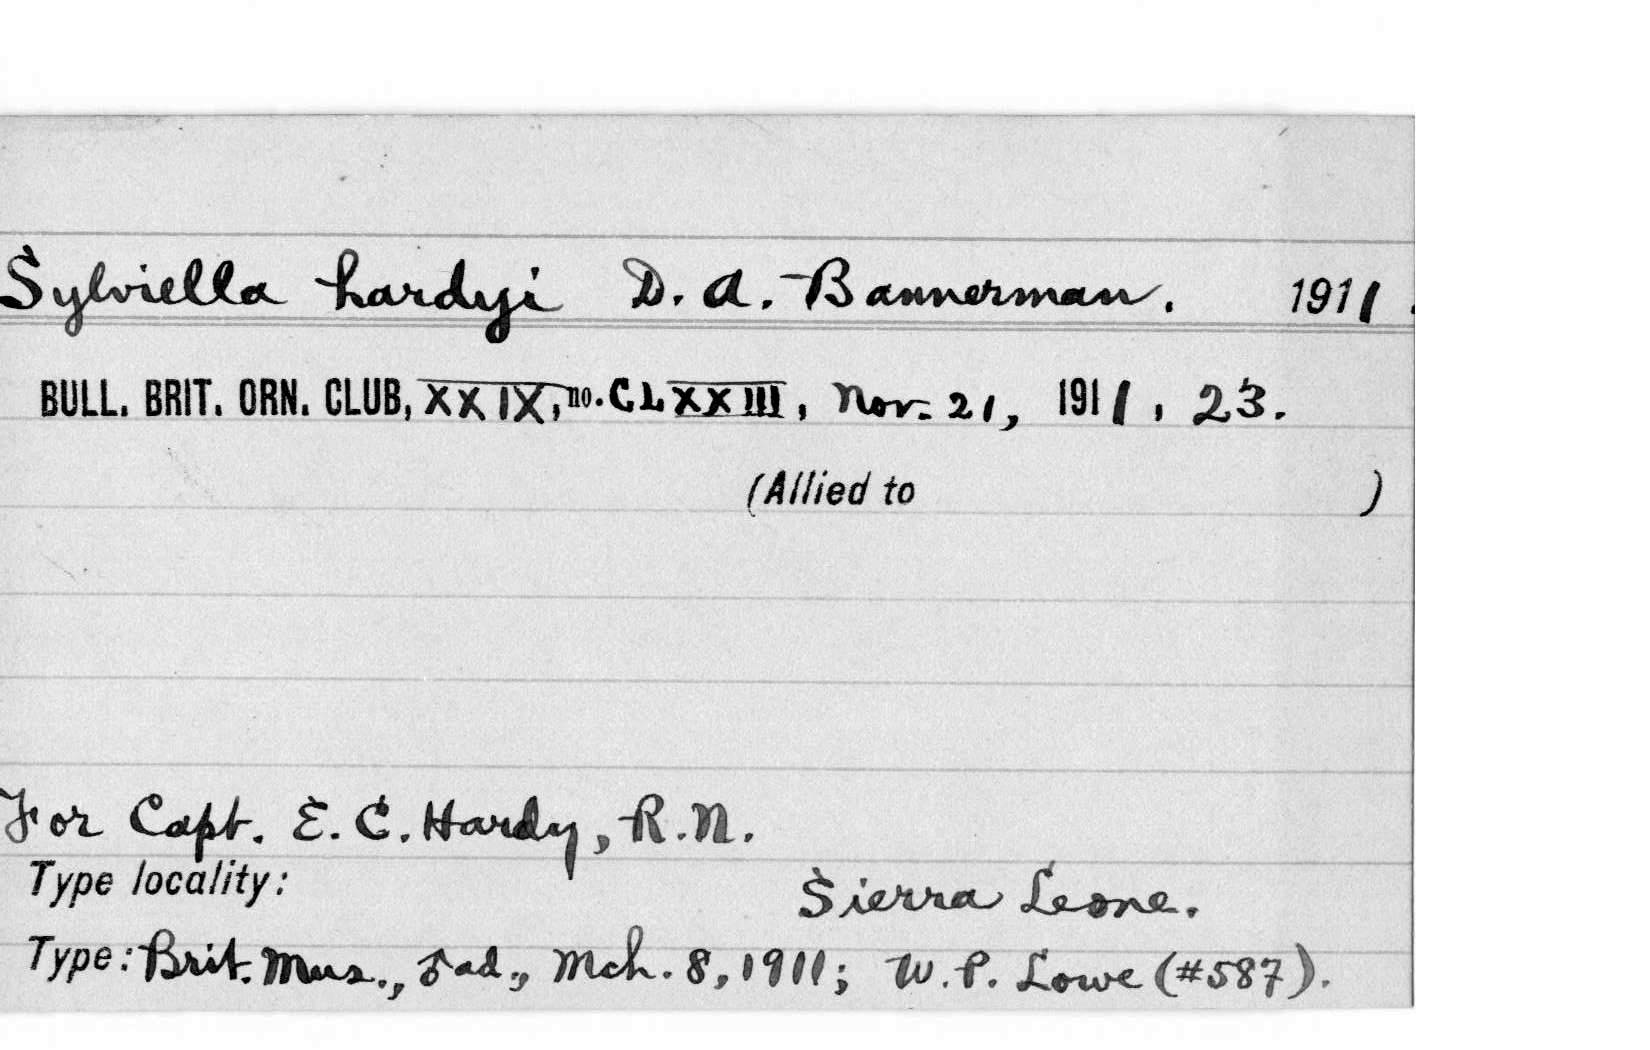 Sylviella hardyi D. A. Bannerman. 1911.
BULL. BRIT. ORN. CLUB, XXIX, no. CLXXIII, Nov. 21, 1911, 23.
(Allied to )
For Capt. E. C. Hardy, R.N.
Type locality: Sierra Leone.
Type: Brit. Mus., ad., Mch. 8, 1911; W. P. Lowe (#587).